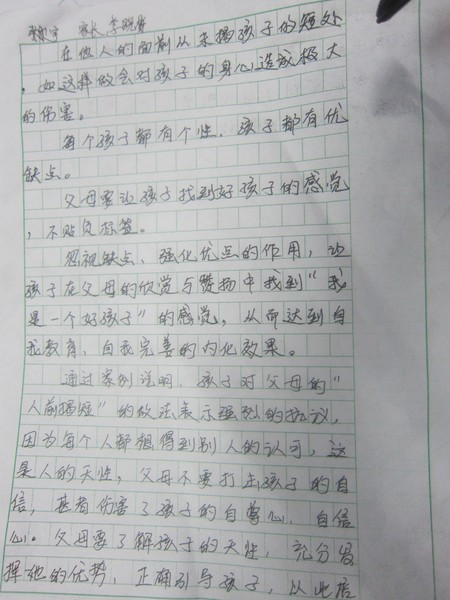 家长 李
在他人的面前从来揭孩子的短处
，如这样做会对孩子的身心造成极大
的伤害。
每个孩子都有个性，孩子都有优
缺点。
父母要让孩子找到好孩子的感觉
，不贴负标签。
忽视缺点、强化优点的作用，让
孩子在父母的欣赏与赞扬中找到“我
是一个好孩子”的感觉，从而达到自
我教育，自我完善的内化效果。
通过案例说明，孩子对父母的“
人前揭短”的做法表示强烈的抗议，
因为每个人都想得到别人的认可，这
是人的天性，父母不要打击孩子的自
信，甚者伤害了孩子的自尊心、自信
心。父母要了解孩子的天性，充分发
挥他的优势，正确引导孩子，以此培